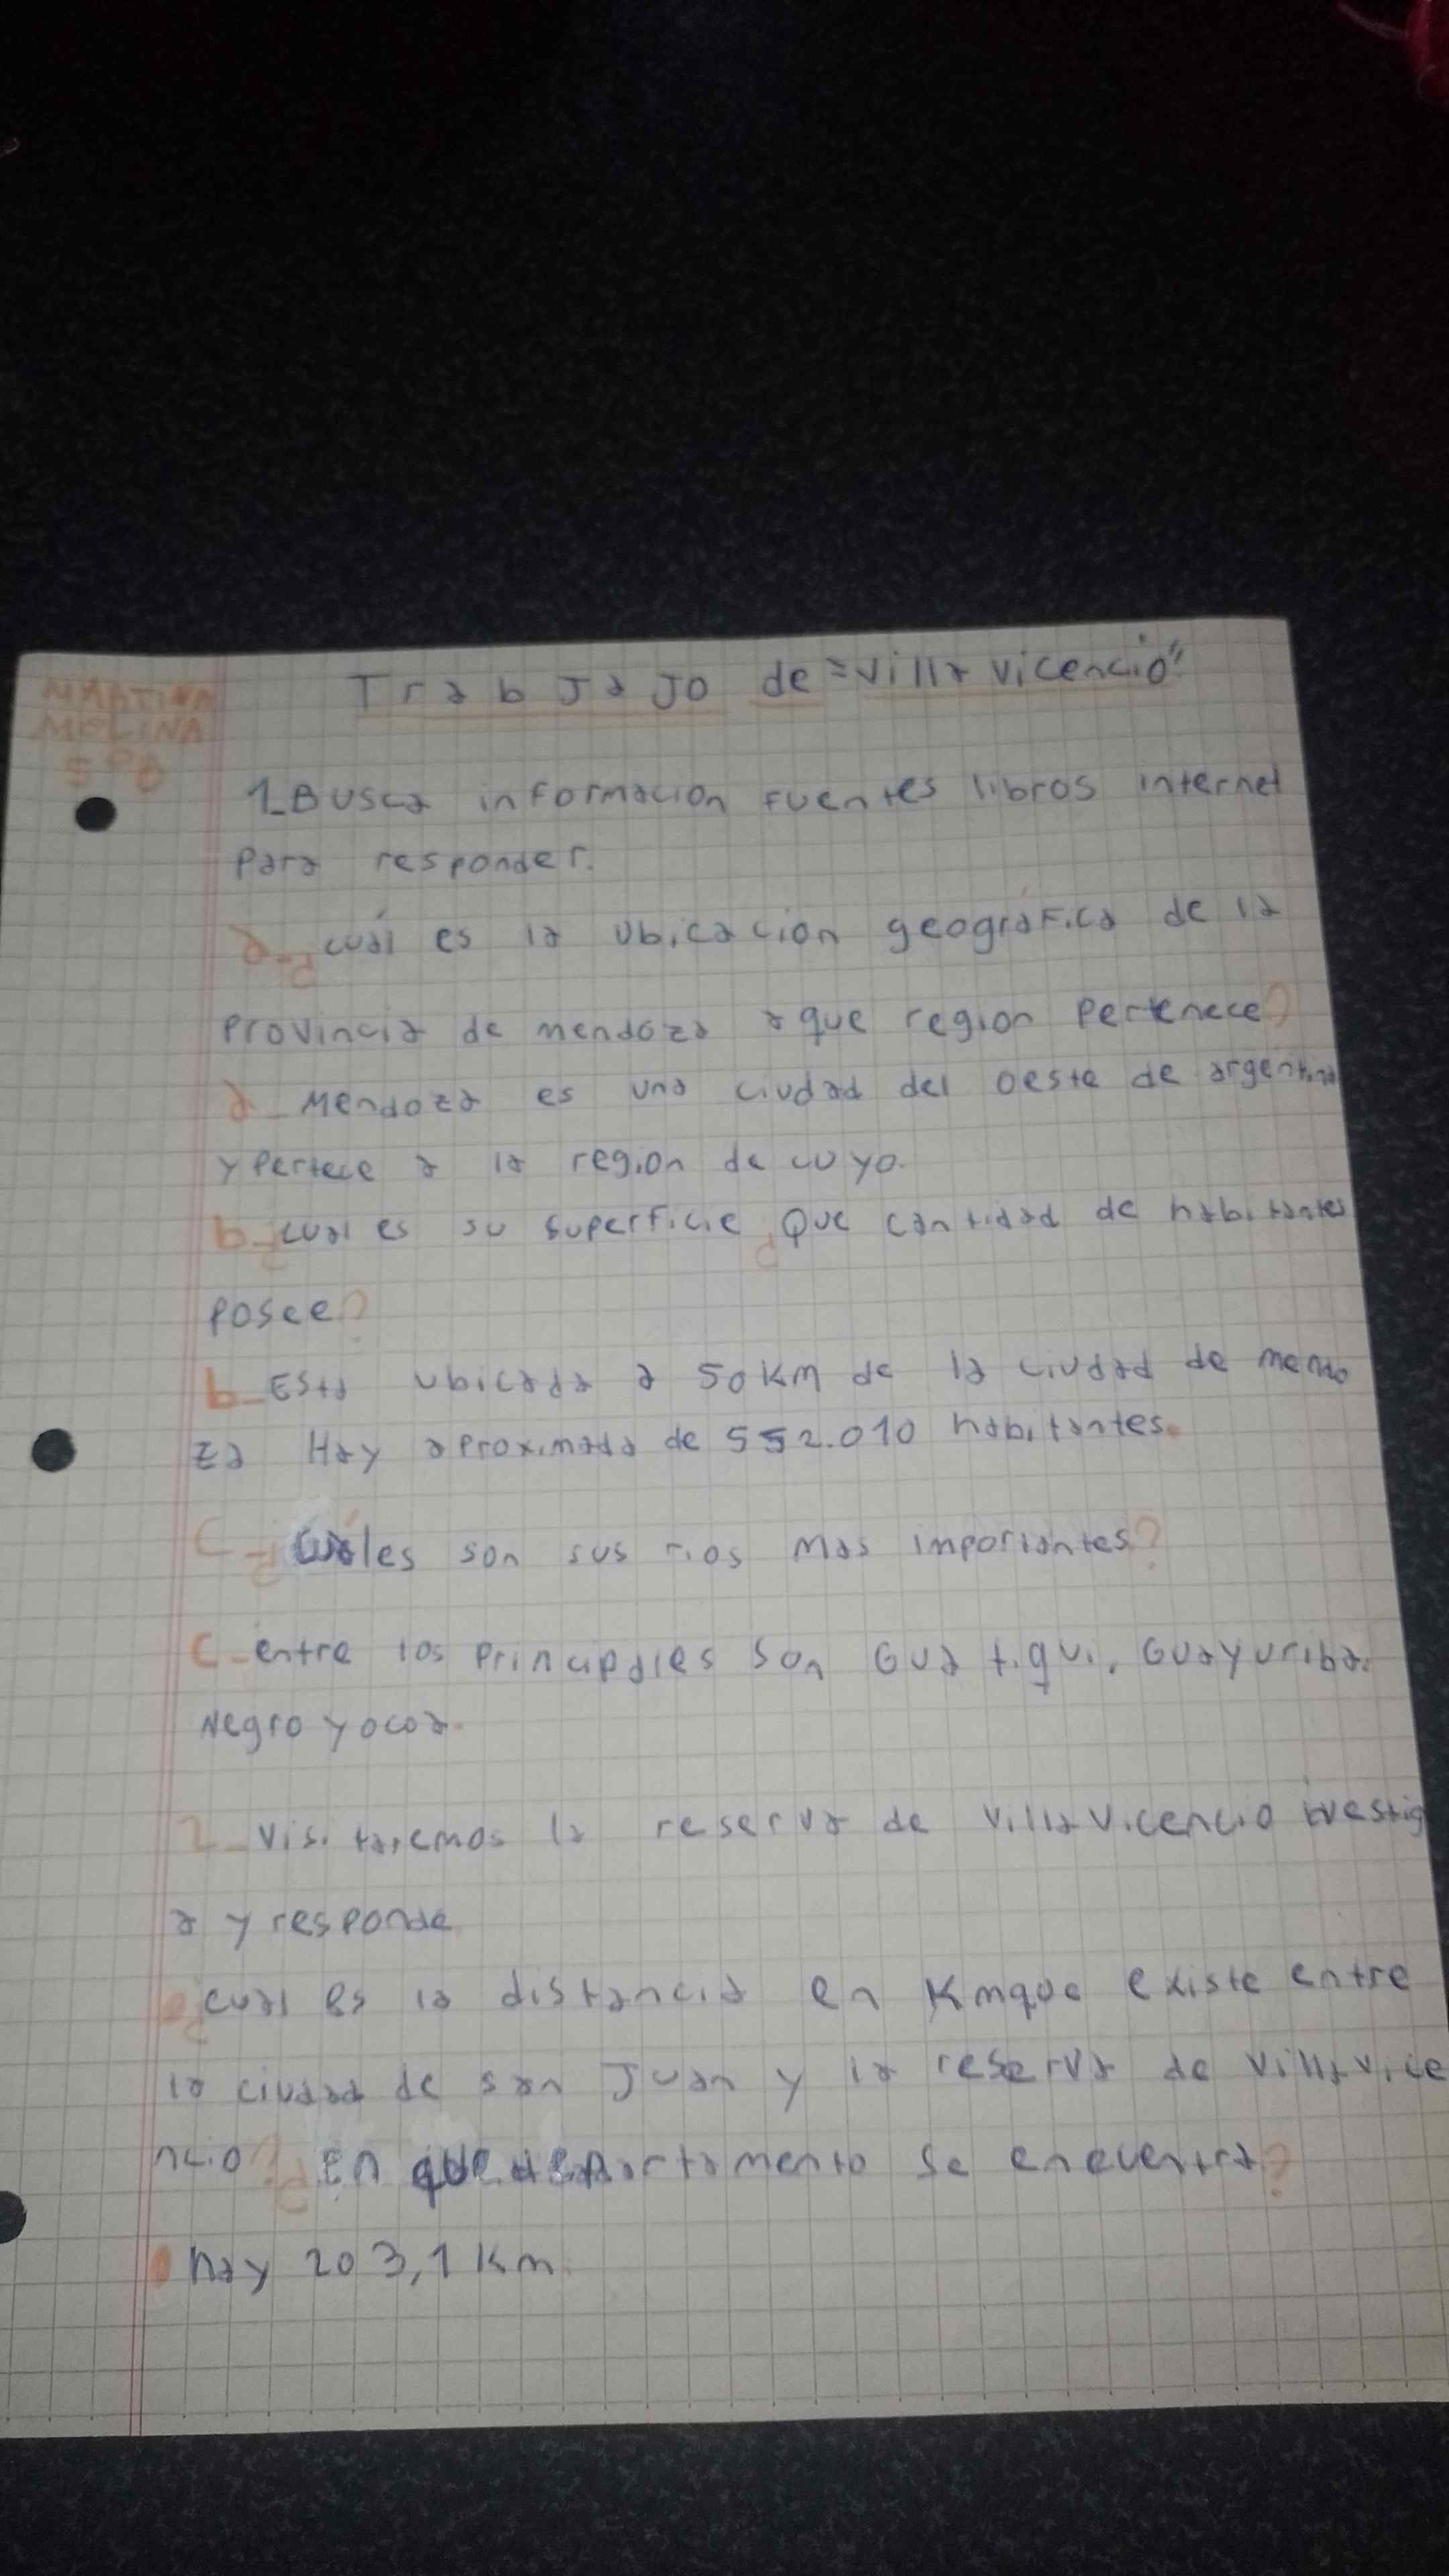 MOLINA
Trabjajo de "villa vicencio"
1_Busca informacion fuentes libros internet
para responder.
a_¿cuál es la ubicación geográfica de la
provincia de mendoza a que region pertenece?
a_Mendoza es una ciudad del oeste de argentina
y pertece a la region de cuyo.
b_¿cual es su superficie ¿Que cantidad de habitantes
posee?
b_Esta ubicada a 50 km de la ciudad de mendo
za Hay aproximada de 552.010 habitantes.
C_¿Cuales son sus rios mas importantes?
C_entre los principales son Guatiqui, Guayuriba.
Negro y ocoa.
2_Visitaremos la reserva de villa vicencio ivestig
a y responde
¿cual es la distancia en Km que existe entre
la ciudad de san Juan y la reserva de villa vice
ncio? ¿En que departamento se encuentra?
hay 203,1 Km.